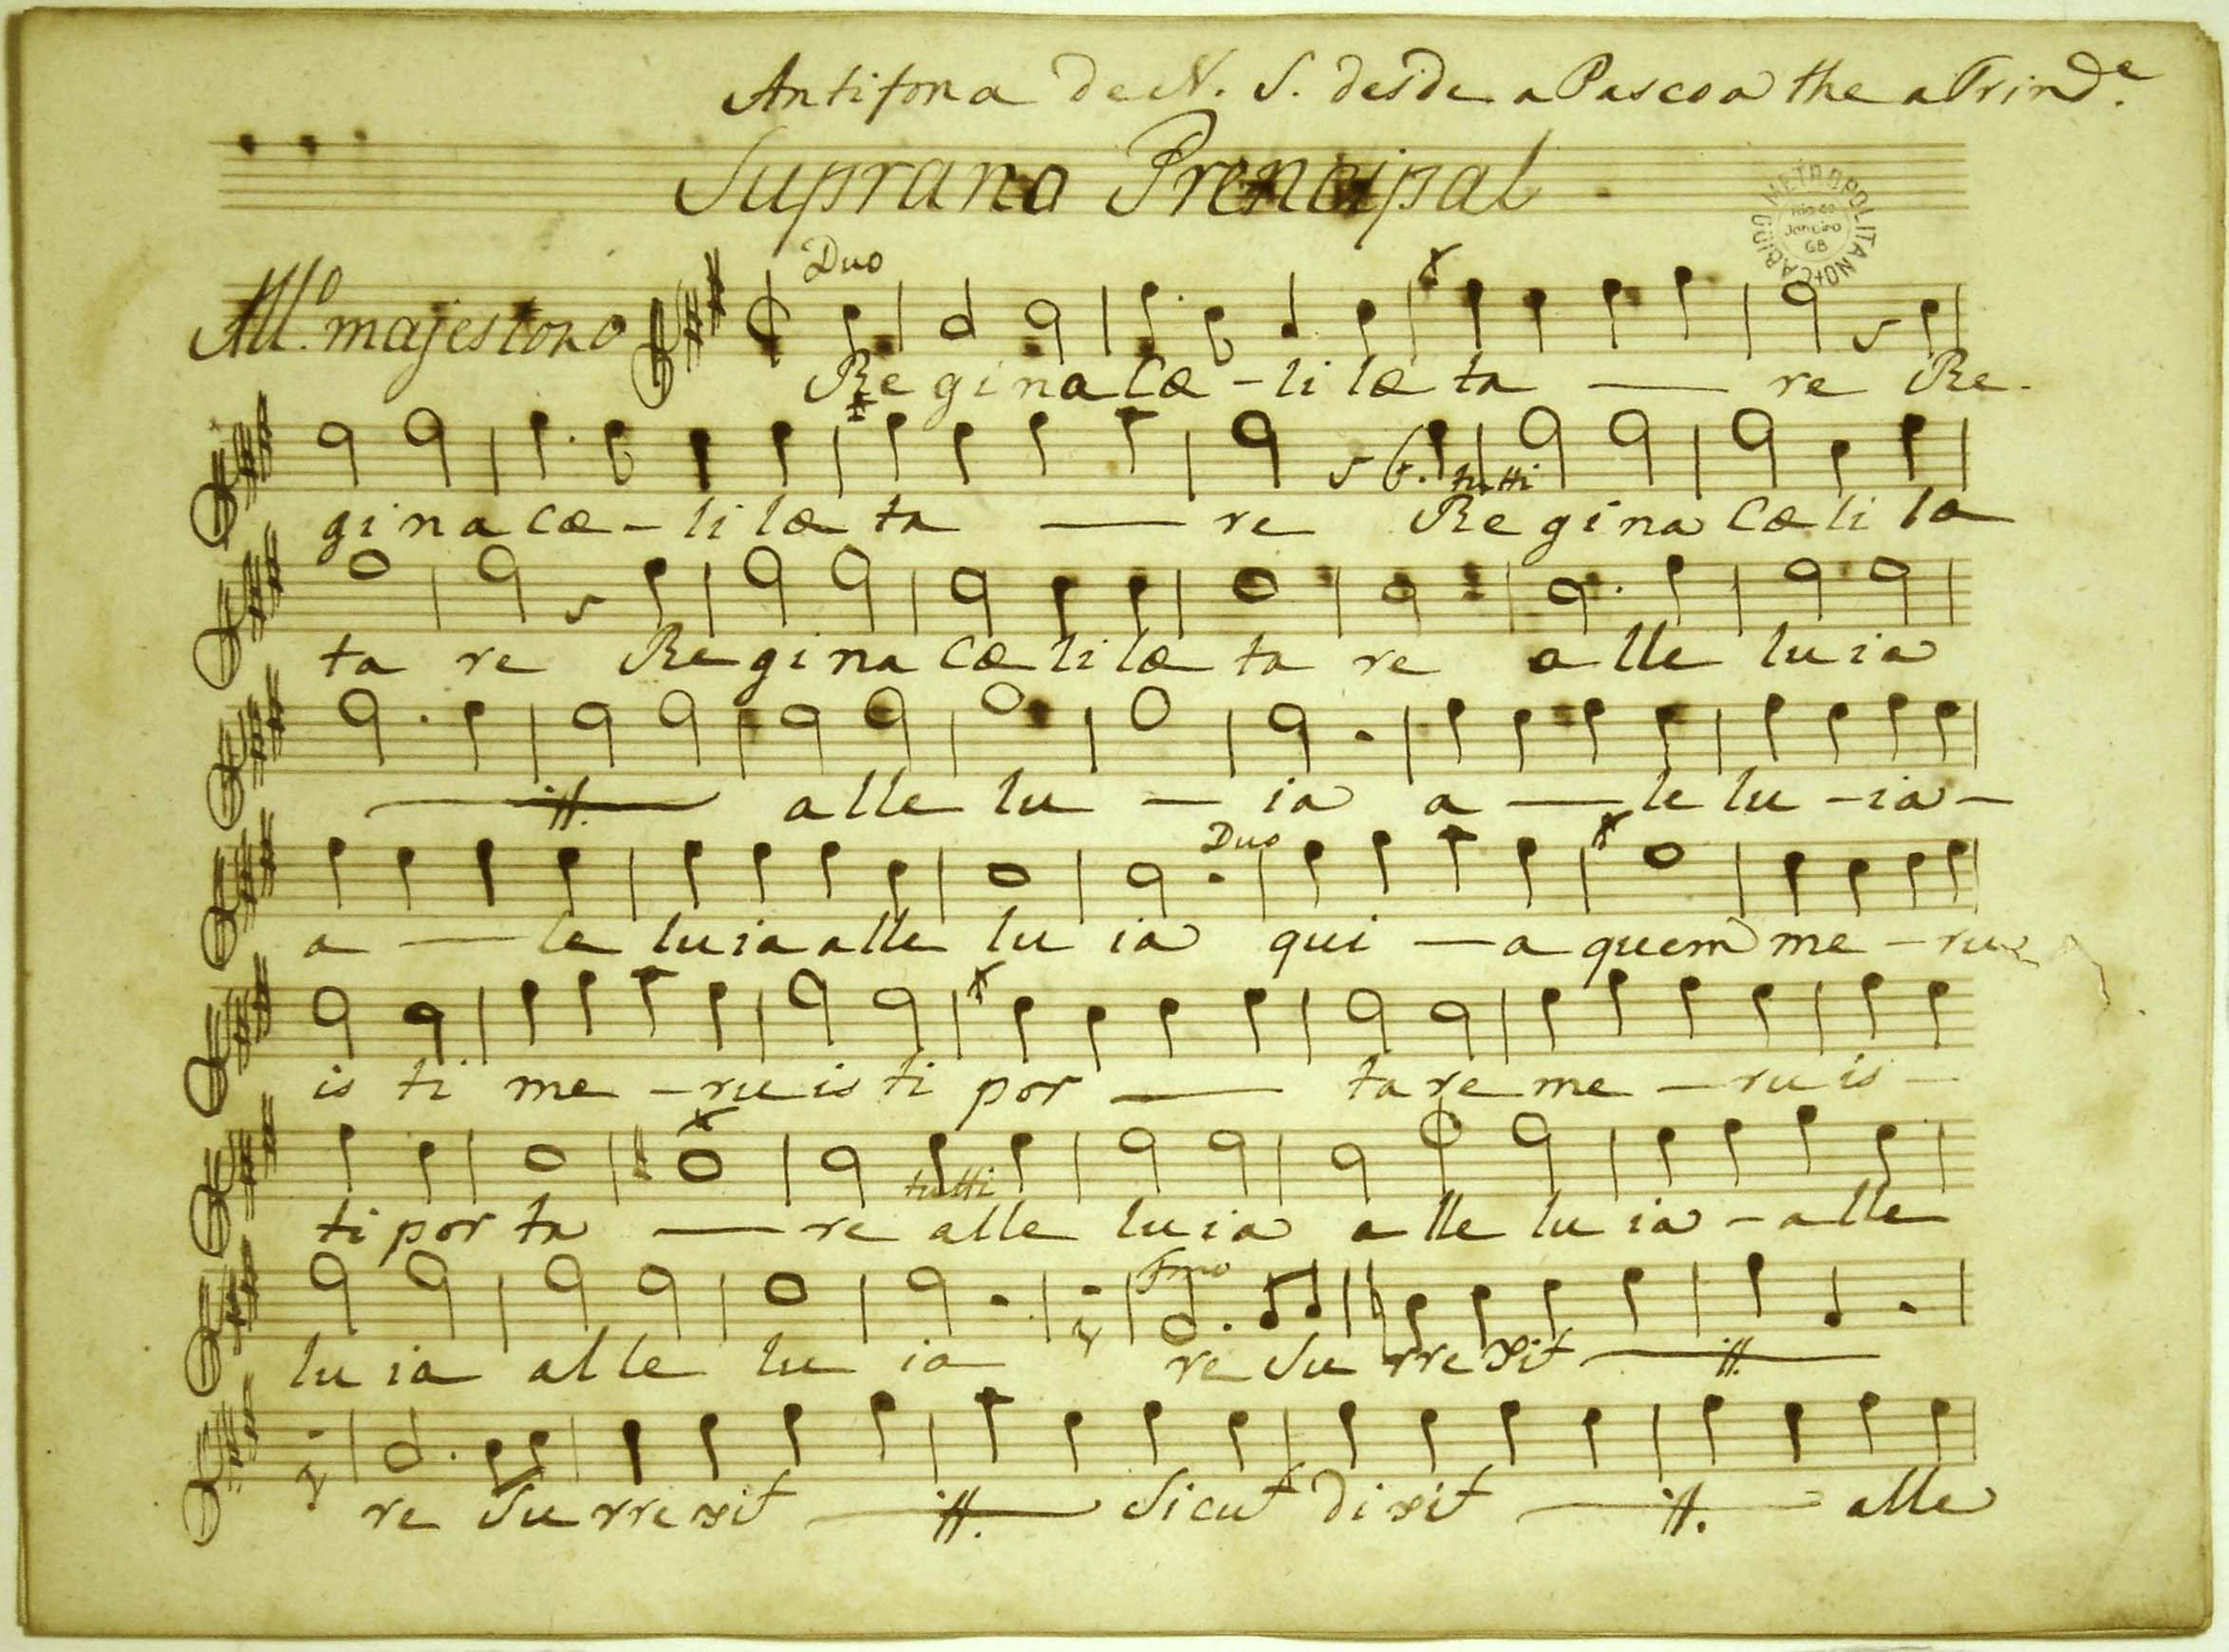 Antifona de N. S. desde a Pascoa the a Trind.e
Suprano Prencipal
CABIDO METROPOLITANO
Rio de Janeiro
GB
All.o majestozo
Duo
Re gi na Cæ - li læ ta — re Re -
gi na cæ - li læ ta — re Re gi na Cæ li læ
tutti
ta re Re gi na Cæ li læ ta re a lle lu ia
— :||: — a lle lu — ia a — le lu - ia -
Duo
a — le lu ia a lle lu ia qui — a quem me - ru
is ti me - ru is ti por — ta re me - ru is -
tutti
ti por ta — re alle lu ia a lle lu ia - a lle
lu ia al le lu ia re Su rre xit — :||: —
re Su rre xit — :||: — Sicut di xit — :||: — alle